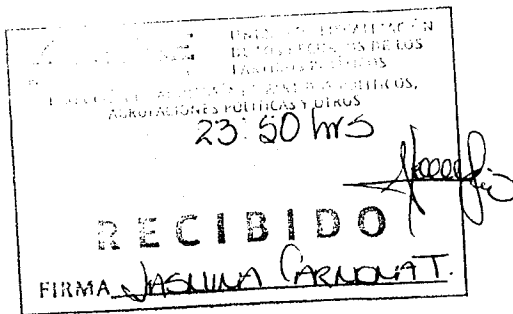 UNIDAD DE FISCALIZACIÓN
DE LOS RECURSOS DE LOS
PARTIDOS POLÍTICOS
POLÍTICOS,
AGRUPACIONES POLÍTICAS Y OTROS
23:50 hrs
RECIBIDO
FIRMA JASMINA CARMONA T.